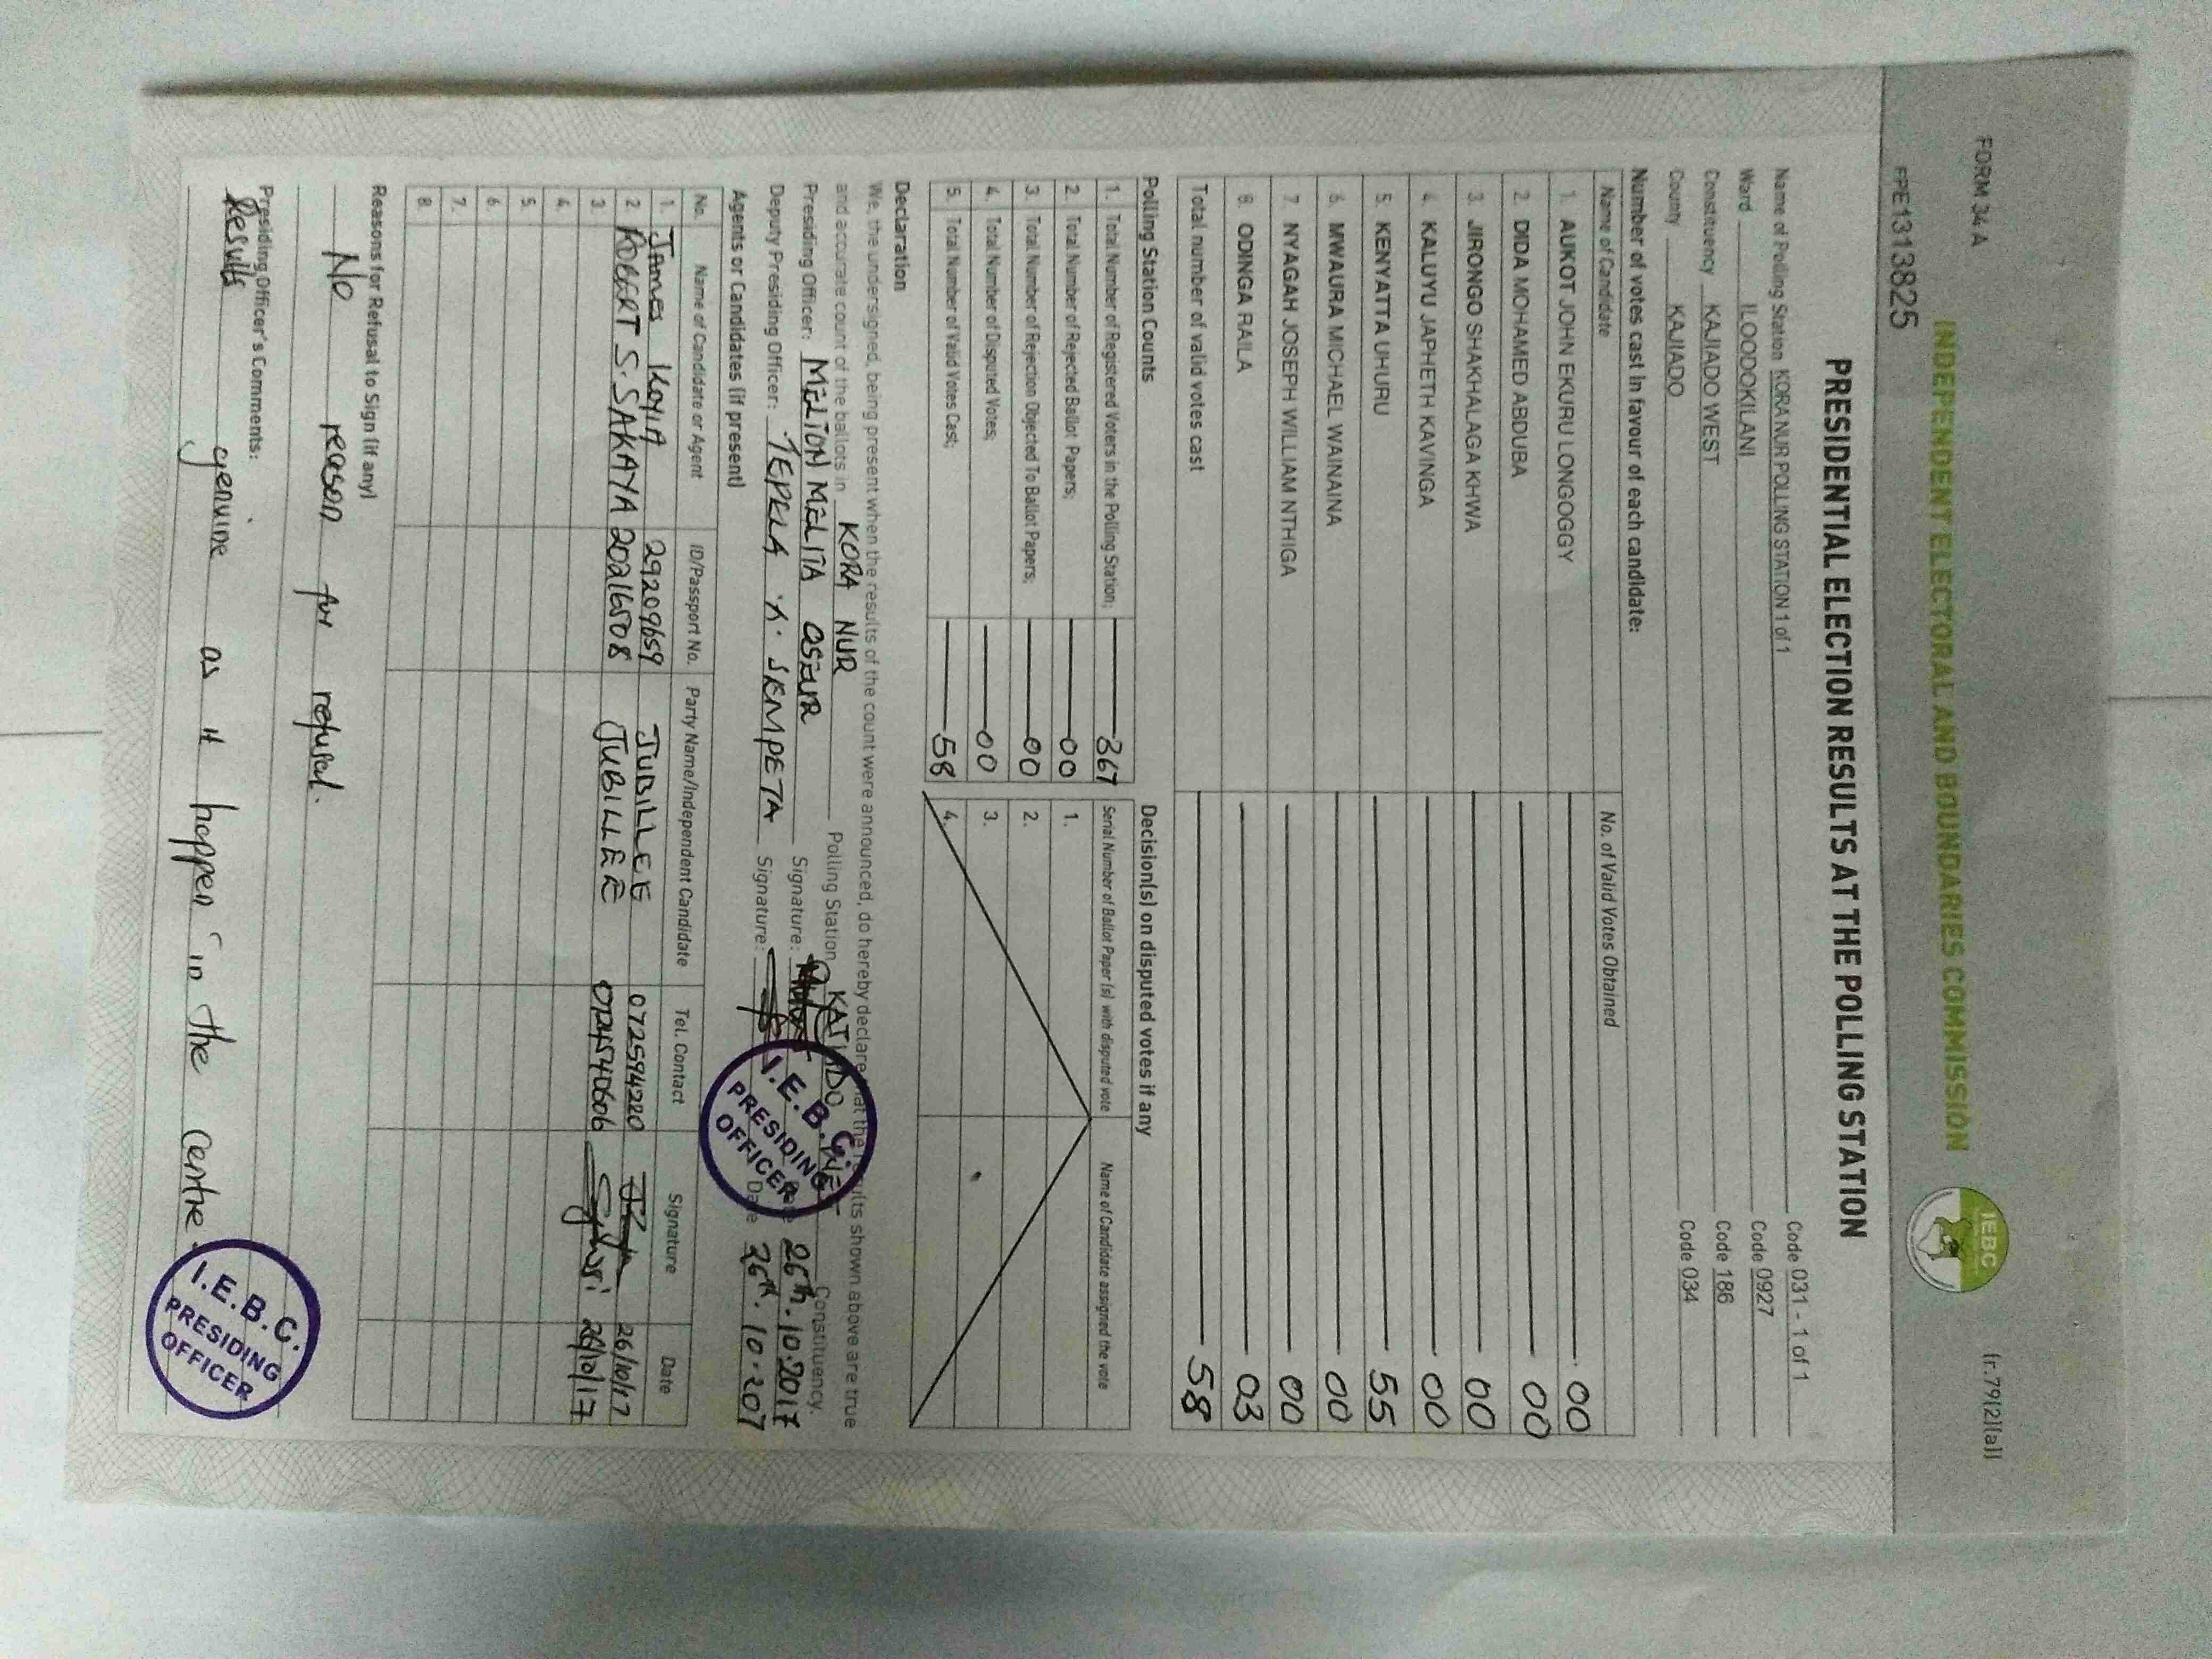 FORM 34 A
(r.79(2)(a))
INDEPENDENT ELECTORAL AND BOUNDARIES COMMISSION
IEBC
PPE1313825
PRESIDENTIAL ELECTION RESULTS AT THE POLLING STATION
Name of Polling Station KORA NUR POLLING STATION 1 of 1 Code 031 - 1 of 1
Ward ILOODOKILANI Code 0927
Constituency KAJIADO WEST Code 186
County KAJIADO Code 034
Number of votes cast in favour of each candidate:
Name of Candidate No. of Valid Votes Obtained
1. AUKOT JOHN EKURU LONGOGGY 00
2. DIDA MOHAMED ABDUBA 00
3. JIRONGO SHAKHALAGA KHWA 00
4. KALUYU JAPHETH KAVINGA 00
5. KENYATTA UHURU 55
6. MWAURA MICHAEL WAINAINA 00
7. NYAGAH JOSEPH WILLIAM NTHIGA 00
8. ODINGA RAILA 03
Total number of valid votes cast 58
Polling Station Counts Decision(s) on disputed votes if any
1. Total Number of Registered Voters in the Polling Station; 367 Serial Number of Ballot Paper (s) with disputed vote Name of Candidate assigned the vote
2. Total Number of Rejected Ballot Papers; 00 1.
3. Total Number of Rejection Objected To Ballot Papers; 00 2.
4. Total Number of Disputed Votes; 00 3.
5. Total Number of Valid Votes Cast; 58 4.
Declaration
We, the undersigned, being present when the results of the count were announced, do hereby declare that the results shown above are true
and accurate count of the ballots in KORA NUR Polling Station KAJIADO Constituency.
Presiding Officer: MELION MELITA Signature: 26th.10.2017
Deputy Presiding Officer: SEMPETA Signature: Date 26th.10.207
I.E.B.C.
PRESIDING
OFFICER
Agents or Candidates (if present)
No. Name of Candidate or Agent ID/Passport No. Party Name/Independent Candidate Tel. Contact Signature Date
1. James Koyia 29209659 JUBILLEE 072594220 26/10/17
2. ROBERT S. SAKAYA 20216508 JUBILLEE 0724540606 26/10/17
3.
4.
5.
6.
7.
8.
Reasons for Refusal to Sign (if any)
No reason for refusal.
Presiding Officer's Comments:
Results genuine as it happen in the centre.
I.E.B.C.
PRESIDING
OFFICER